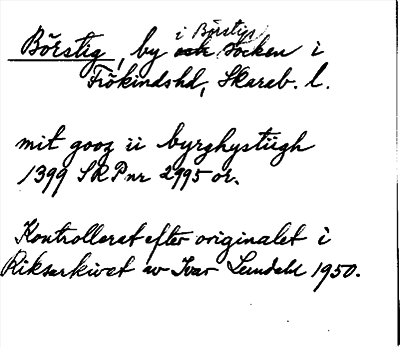 Börstig, by i Börstigs socken i
Frökindshd, Skarab. l.
mit gooz ii byrghystiigh
1399 SRP nr 2995 or.
Kontrollerat efter originalet i
Riksarkivet av Ivar Lundahl 1950.